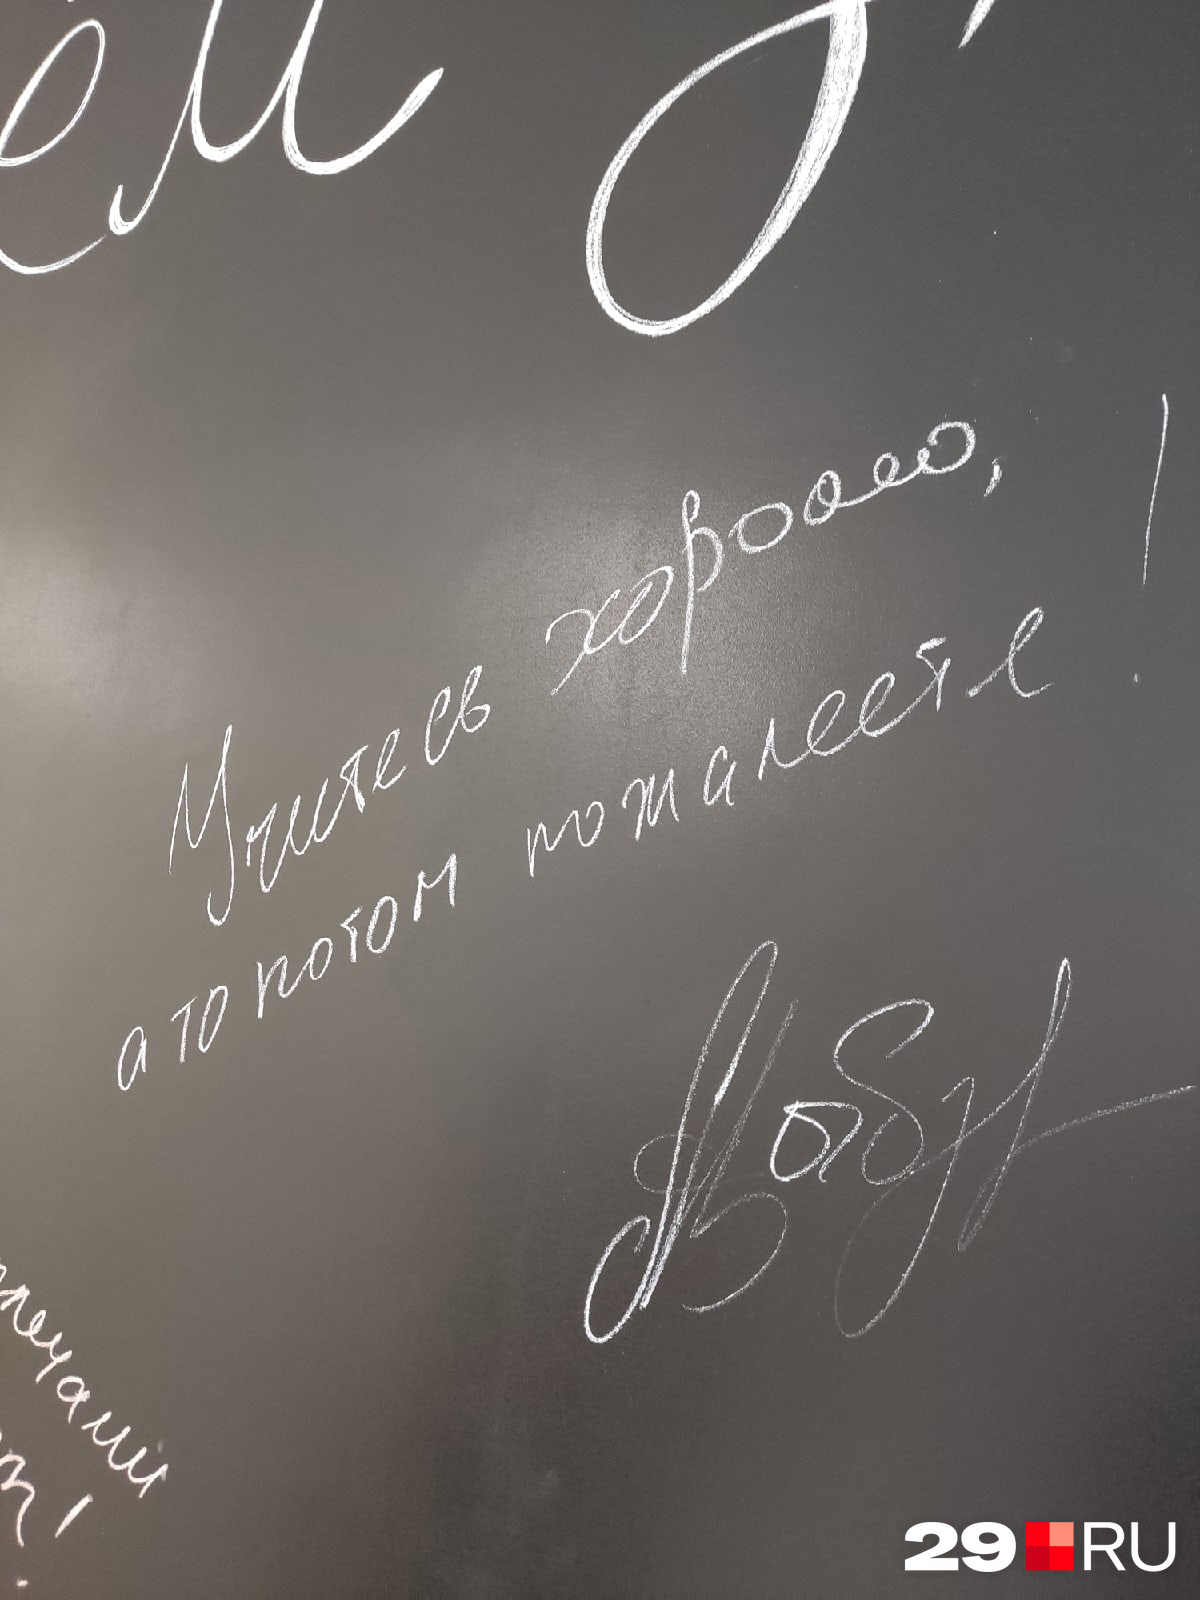 Учитесь хорошо,
а то потом пожалеете!
плечами
29.RU